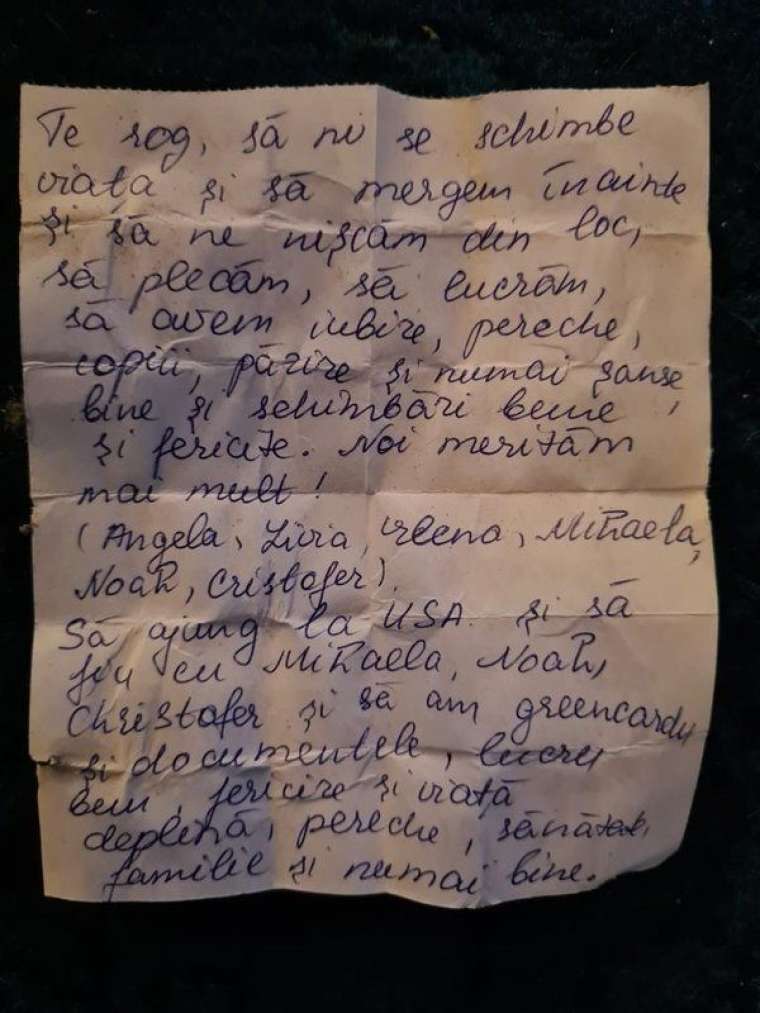 Te rog, să ni se schimbe
viața și să mergem înainte
și să ne nișcăm din loc,
să plecăm, să lucrăm,
să avem iubire, pereche,
copiii, părire și numai șanse,
bine și schimbări beme
și fericite. Noi merităm
mai mult!
(Angela, Livia, Irena, Mihaela,
Noah, Cristofer).
Să ajung la USA. și să
fiu cu Mihaela, Noah,
Christofer și să am greencardu
și documentele, lucru
bem, fericire și viață
deplină, pereche, sănătate,
familie și numai bine.